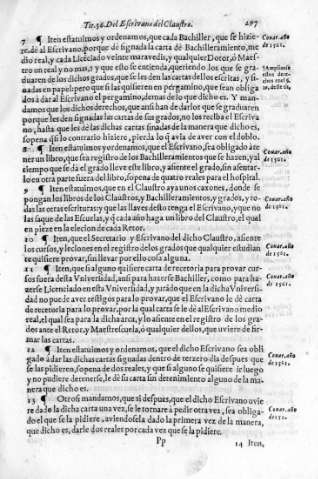 Tit. 56. Del Escrivano del Claustro. 297
7 ¶ Iten estatuimos y ordenamos, que cada Bachiller, que se hizie-
re, dè al Escrivano, porque dé signada la carta dê Bachilleramiento, me
dio real, y cada Licẽciado veinte maravedis, y qualquier Dotor, ó Maes-
tro un real y no mas, y que esto se entienda, queriendo los que se gra-
duaren de los dichos grados, que se les den las cartas dellos escritas, y si-
nadas en papel: pero que si las quisieren en pergamino, que sean obliga
dos à dar al Escrivano el pergamino, demas de lo que dicho es. Y man-
damos que los dichos derechos, que ansi han de dar los que se graduaren
porque les den signadas las cartas de sus grados, no los reciba el Escriva
no, hasta que les dè las dichas cartas sinadas de la manera que dicho es,
sopena q̃ si lo contrario hiziere, pierda lo q̃ avia de aver con el doblo.
8 ¶ Iten estatuimos y ordenamos, que el Escrivano, sea obligado à te
ner un libro, que sea registro de los Bachilleramientos que se hazen, y al
tiempo que se dà el grado lleve este libro, y assiente el grado, sin assentar-
lo en otra parte fuera del libro, sopena de quatro reales para el hospital.
9 ¶ Iten estatuimos, que en el Claustro aya unos caxones, donde se
pongan los libros de los Claustros, y Bachilleramientos, y grados, y to-
das las otras escrituras: y que las llaves desto tenga el Escrivano, y que no
las saque de las Escuelas, y q̃ cada año haga un libro del Claustro, el qual
en pieze en la elecion de cada Retor.
10 ¶ Iten, que el Secretario y Escrivano del dicho Claustro, assiente
los cursos, y leciones en el registro de los grados que qualquier estudian
te quisiere provar, sin llevar por ello cosa alguna.
11 ¶ Iten, que si alguno quisiere carta de retoria para provar cur-
sos fuera desta Universidad, ansi para hazerse Bachiller, como para ha-
zerse Licenciado en esta Universidad, y jurádo que en la dicha Vniversi-
dad no puede aver testigos para lo provar, que el Escrivano le dé carta
de recetoria para lo provar, por la qual carta se le dè al Escrivano medio
real, el qual sea para la dicha arca, y lo assiente en el registro de los gra-
dos ante el Retor, y Maestrescuela, ó qualquier dellos, que uviere de fir-
mar las cartas.
12 ¶ Iten estatuimos y ordenamos, que el dicho Escrivano sea obli
gado à dar las dichas cartas signadas dentro de terzero dia despues que
se las pidieren, sopena de dos reales, y que si alguno se quisiere ir luego
y no pudiere detenerse, le dè su carta sin detenimiento alguno de la ma-
nera que dicho es.
13 ¶ Otrosi mandamos, que si despues, que el dicho Escrivano uvie
re dado la dicha carta una vez, se le tornare à pedir otra vez, sea obliga-
do el que se la pidiere, aviendosela dado la primera vez de la manera,
que dicho es, darle dos reales por cada vez que se la pidiere.
Pp
14 Iten,
Conar. año
de 1561.
Conar. año
de 1561.
Conar. año
de 1561.
Conar. año
de 1561.
Conar. año
de 1561.
Conar. año